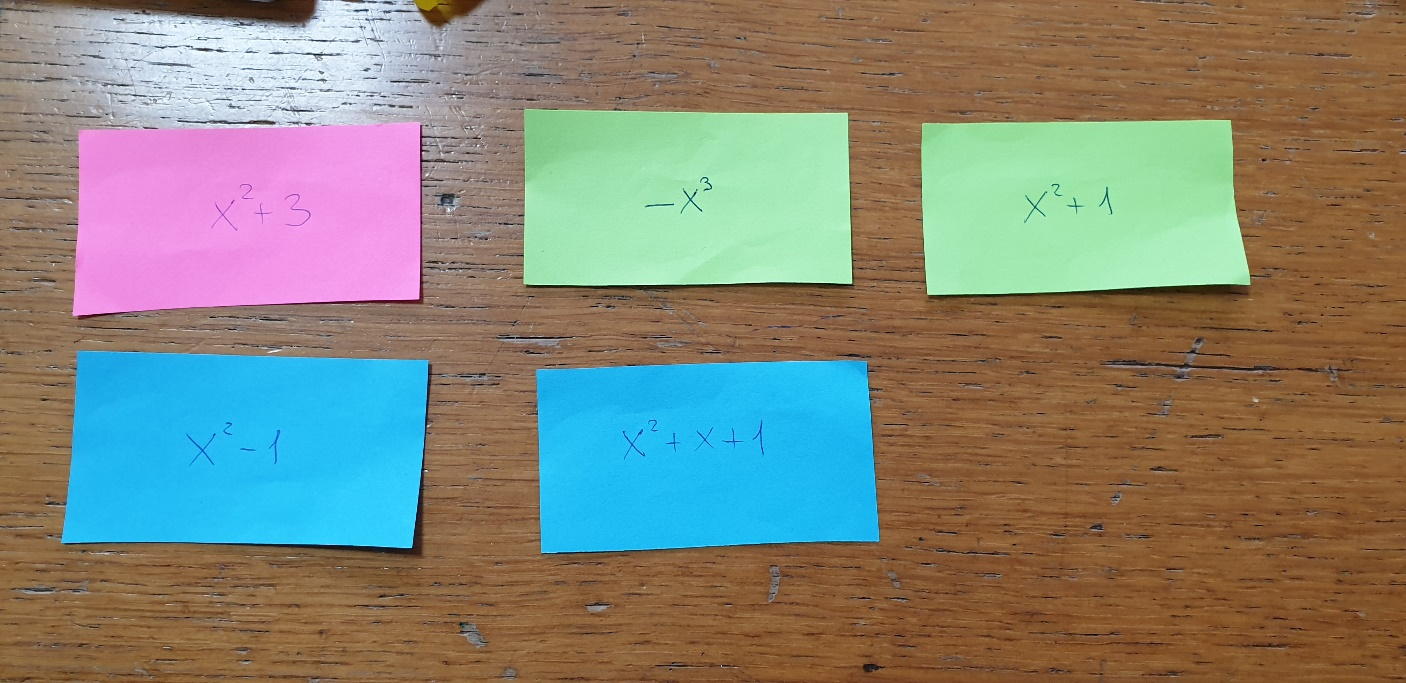 x²+3
-x³
x²+1
x²-1
x²+x+1